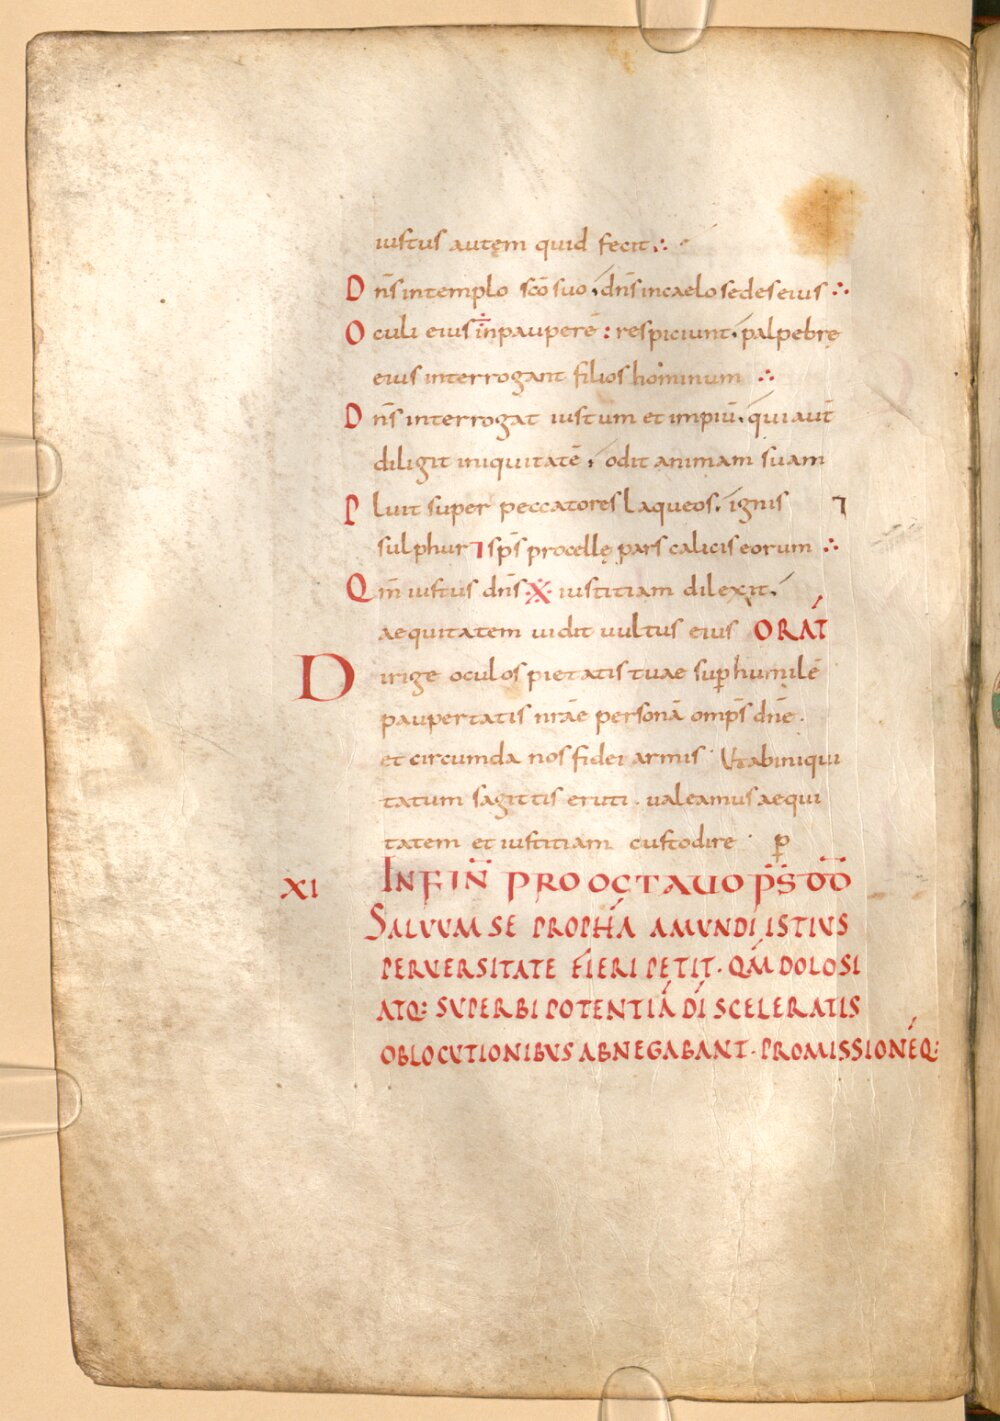 iustus autem quid fecit ∴
Dn̄s in templo sc̄o suo, dn̄s in caelo sedes eius ∴
Oculi eius in pauperē : respiciunt. palpebrę
eius interrogant filios hominum ∴
Dn̄s interrogat iustum et impiū. qui aut̄
diligit iniquitatē, odit animam suam
Pluit super peccatores laqueos. ignis ⁊
sulphur ⁊ sp̄s procellę pars calicis eorum ∴
Qm̄ iustus dn̄s ※ iustitiam dilexit.
aequitatem uidit uultus eius ORAT̄
Dirige oculos pietatis tuae sup̄ humilē
paupertatis nr̄ae personā omp̄s dn̄e.
et circumda nos fidei armis. Ut ab iniqui
tatum sagittis eruti. ualeamus aequi
tatem et iustitiam custodire. ꝑ
XI IN FIN̄ PRO OCTAUO PS̄ DD̄
SALUUM SE PROPHĀ A MUNDI ISTIUS
PERUERSITATE FIERI PETIT. QM̄ DOLOSI
ATQ: SUPERBI POTENTIĀ DĪ SCELERATIS
OBLOCUTIONIBUS ABNEGABANT. PROMISSIONĒQ: